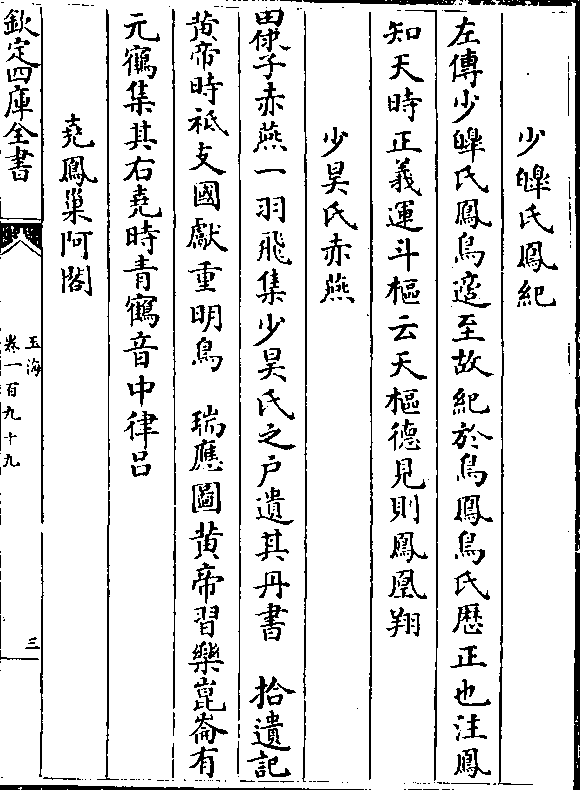 少皥氏鳳紀
左傳少皥氏鳳鳥適至故紀於鳥鳳鳥氏歴正也注鳳
知天時正義運斗樞云天樞德見則鳳凰翔
少昊氏赤燕
田俅子赤燕一羽飛集少昊氏之户遺其丹書　拾遺記
黄帝時祗支國獻重明鳥　瑞應圖黄帝習樂崑崙有
元鶴集其右堯時青鶴音中律吕
堯鳳巢阿閣
欽定四庫全書
玉海
卷一百九十九
三